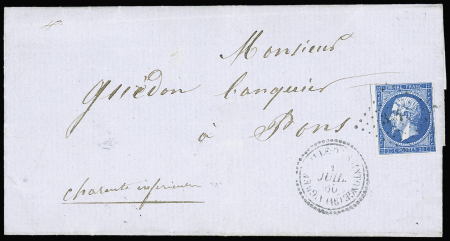 Monsieur
Guédon banquier
à Pons
charente inférieure
JUIL.
60